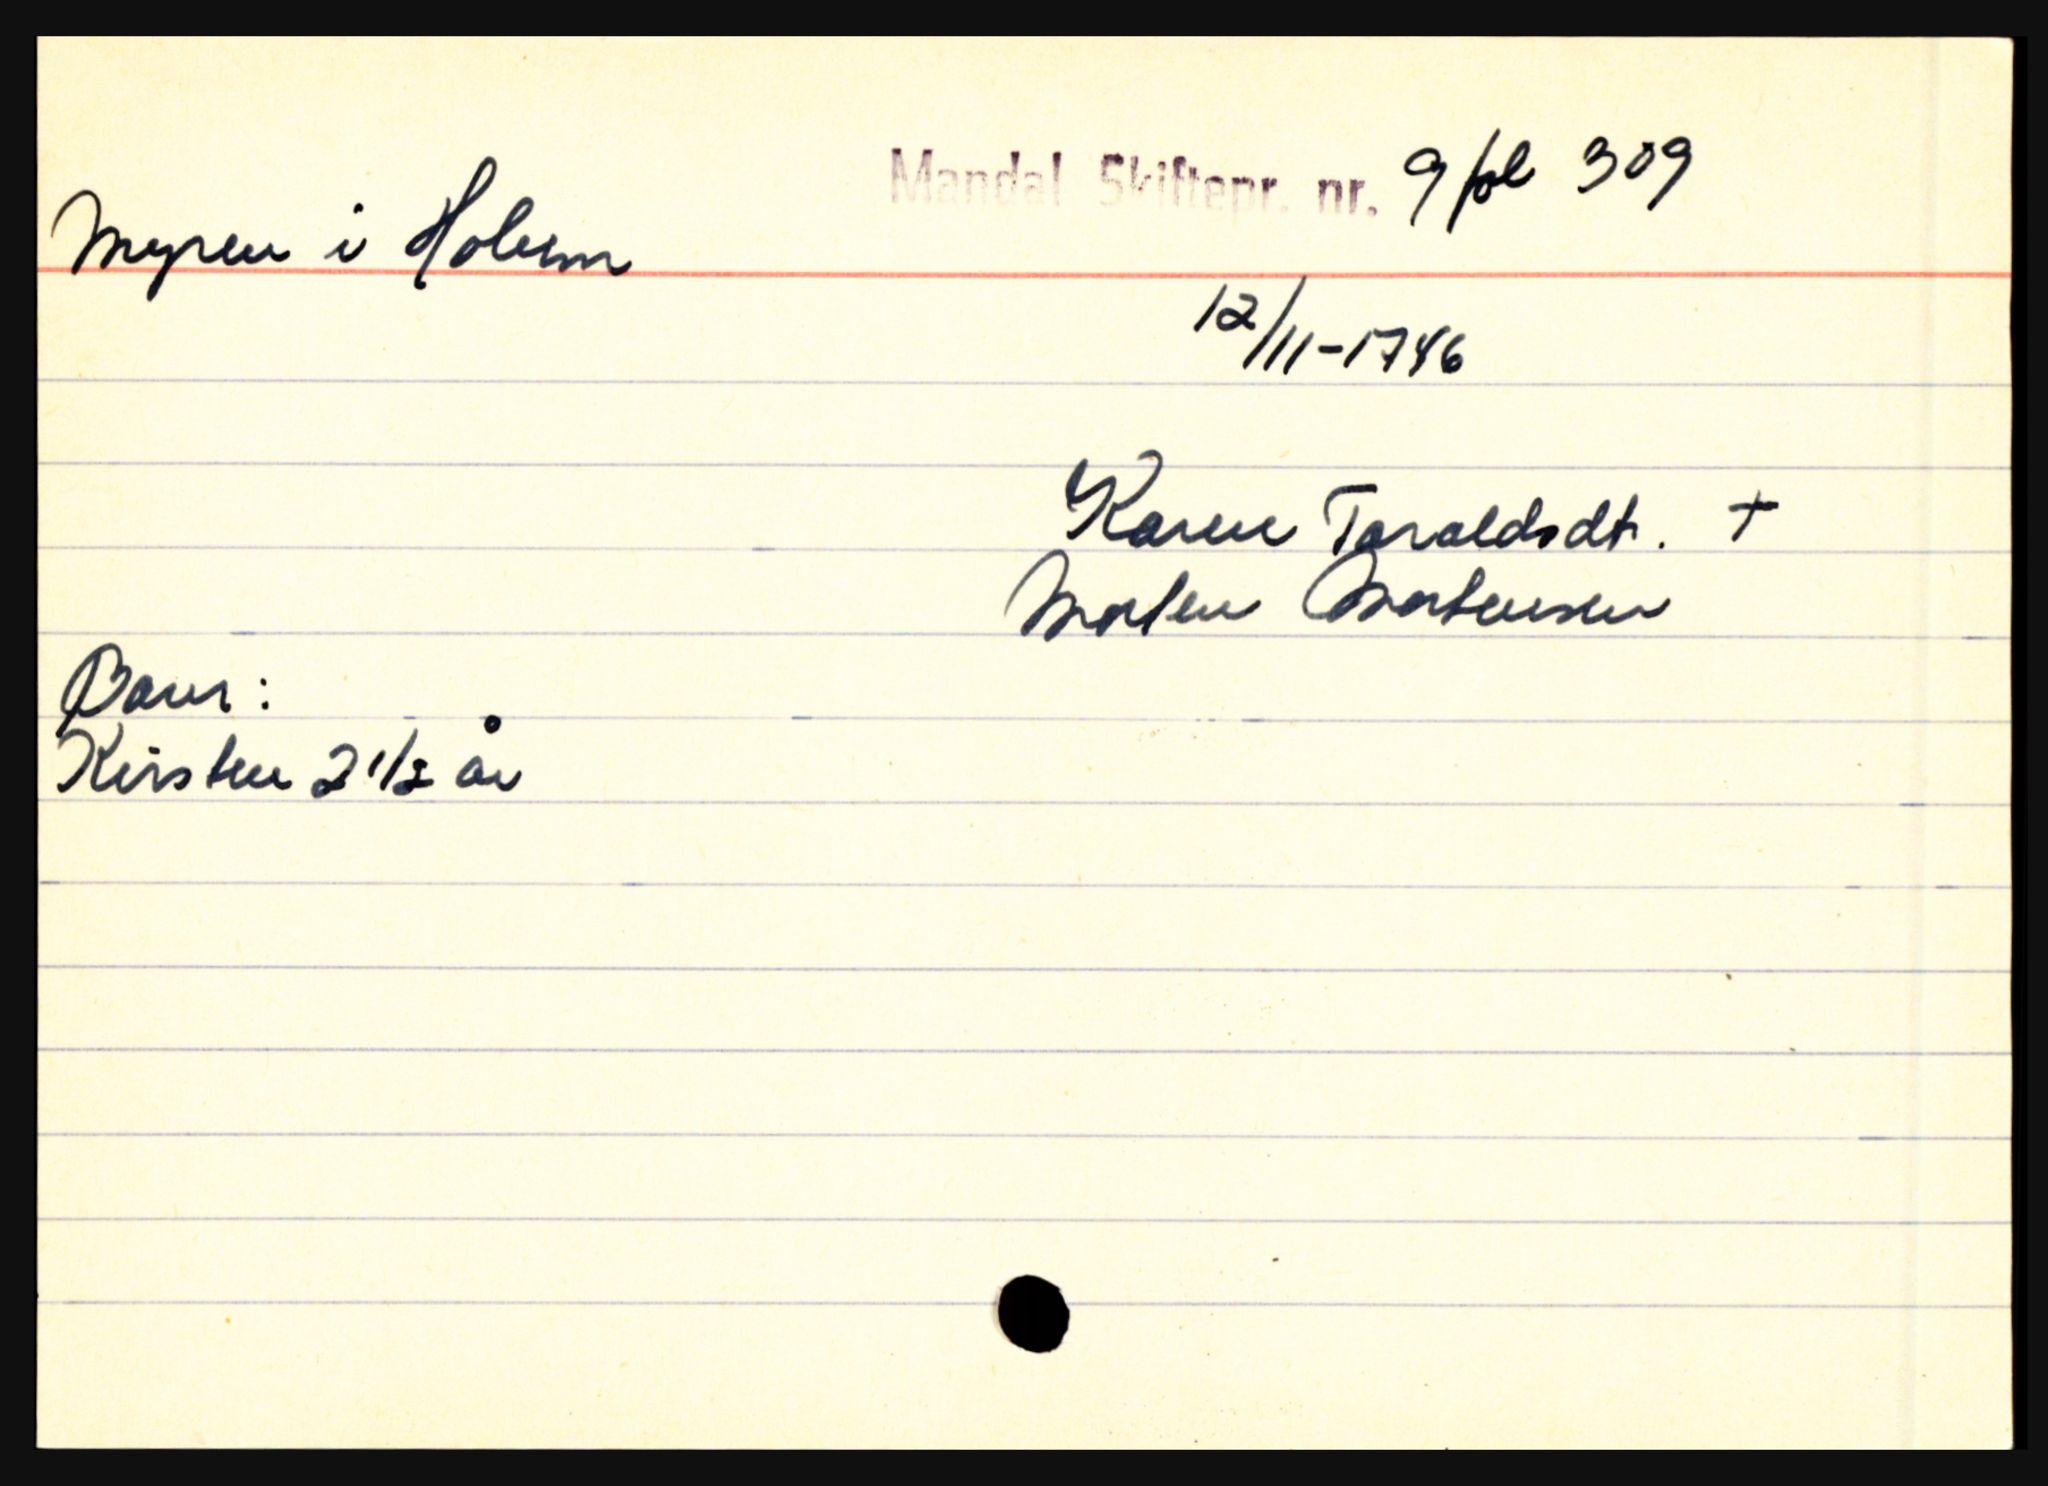 Mandal Skiftepr. nr. 9 fol 309
Myren i Holum
12/11-1746
Karen Taraldsdt. +
Morten Mortensen
Barn:
Kirsten 2 1/2 år